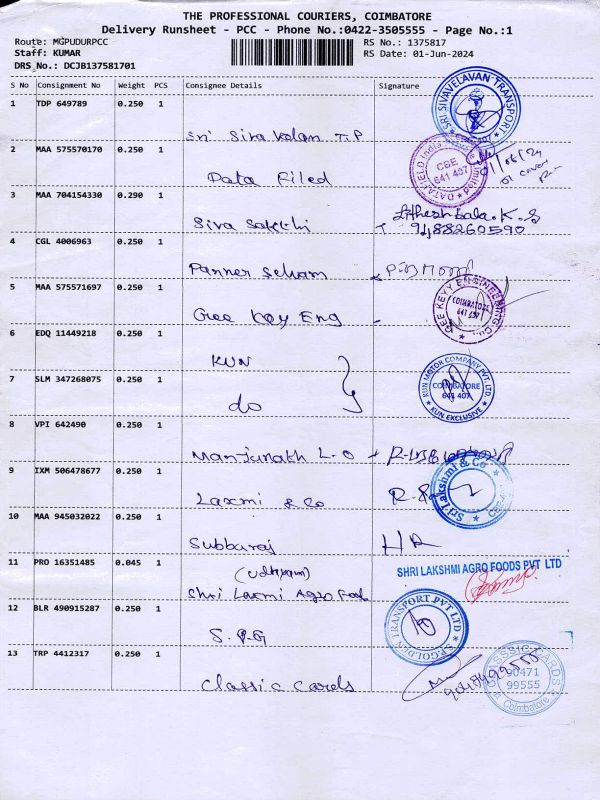 THE PROFESSIONAL COURIERS, COIMBATORE
Delivery Runsheet - PCC - Phone No.:0422-3505555 - Page No.:1
Route: MGPUDURPCC RS No.: 1375817
Staff: KUMAR RS Date: 01-Jun-2024
DRS_No.: DCJB137581701
S No Consignment No Weight PCS Consignee Details Signature
1 TDP 649789 0.250 1
SRI SIVAVELAVAN TRANSPORT
Sri Siva Velan T.P
2 MAA 575570170 0.250 1
DATAFIELD India CBE 641 407
Data Filed
3 MAA 704154330 0.290 1
Siva Sakthi 9488260590
4 CGL 4006963 0.250 1
Panner Selvam
5 MAA 575571697 0.250 1
GEE KEYY ENGINEERING CO. COIMBATORE 641 407
Gee Key Eng
6 EDQ 11449218 0.250 1
KUN
7 SLM 347268075 0.250 1
KUN MOTOR COMPANY PVT. LTD. COIMBATORE 641 407 KUN EXCLUSIVE
do
8 VPI 642490 0.250 1
Manjunath L-O
9 IXM 506478677 0.250 1
Sri Lakshmi & Co
Laxmi & Co
10 MAA 945032022 0.250 1
Subbaraj HR
11 PRO 16351485 0.045 1
SHRI LAKSHMI AGRO FOODS PVT LTD
Shri Laxmi Agro Food
12 BLR 490915287 0.250 1
S.P.GOLDEN TRANSPORT PVT LTD
S.P.G
13 TRP 4412317 0.250 1
CLASSIC CARDS 90471 99555 Coimbatore
Classic Cards